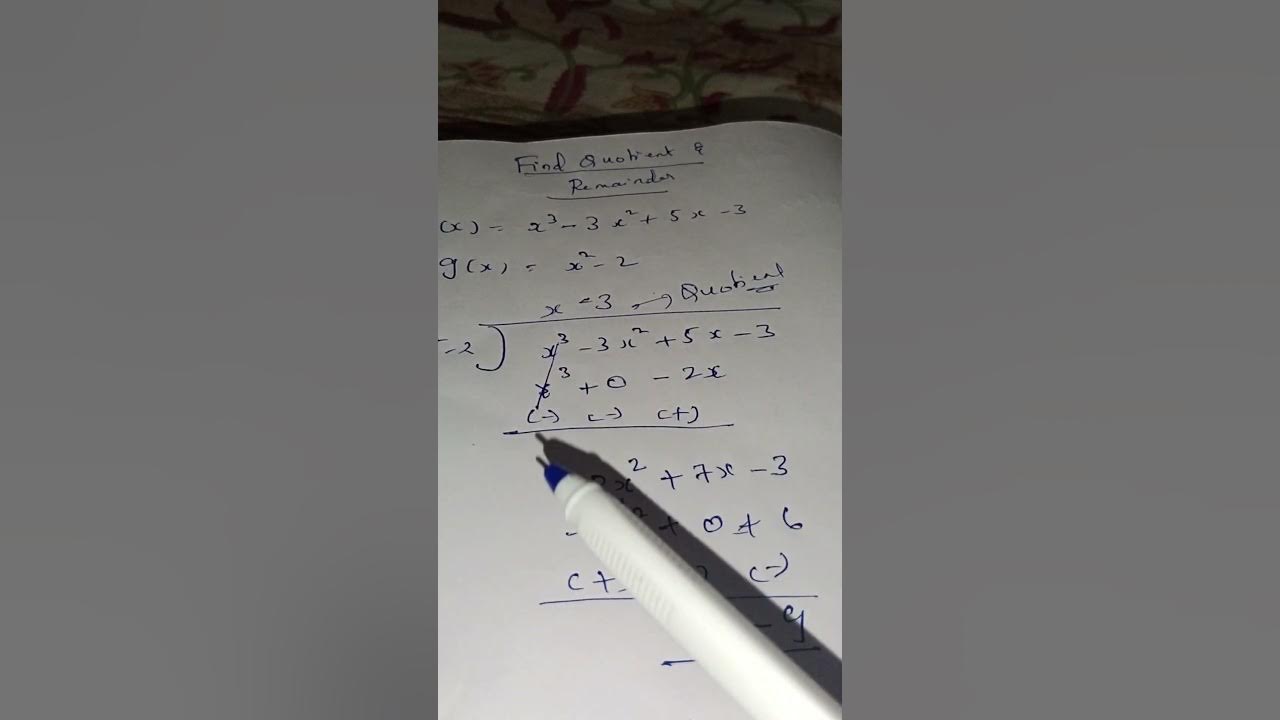 Find Quotient &
Remainder
(x) = x³ - 3x² + 5x - 3
g(x) = x² - 2
x - 3 → Quotient
- 2 ) x³ - 3x² + 5x - 3
x³ + 0 - 2x
(-) (-) (+)
x² + 7x - 3
+ 0 + 6
(+) (-)
- 9